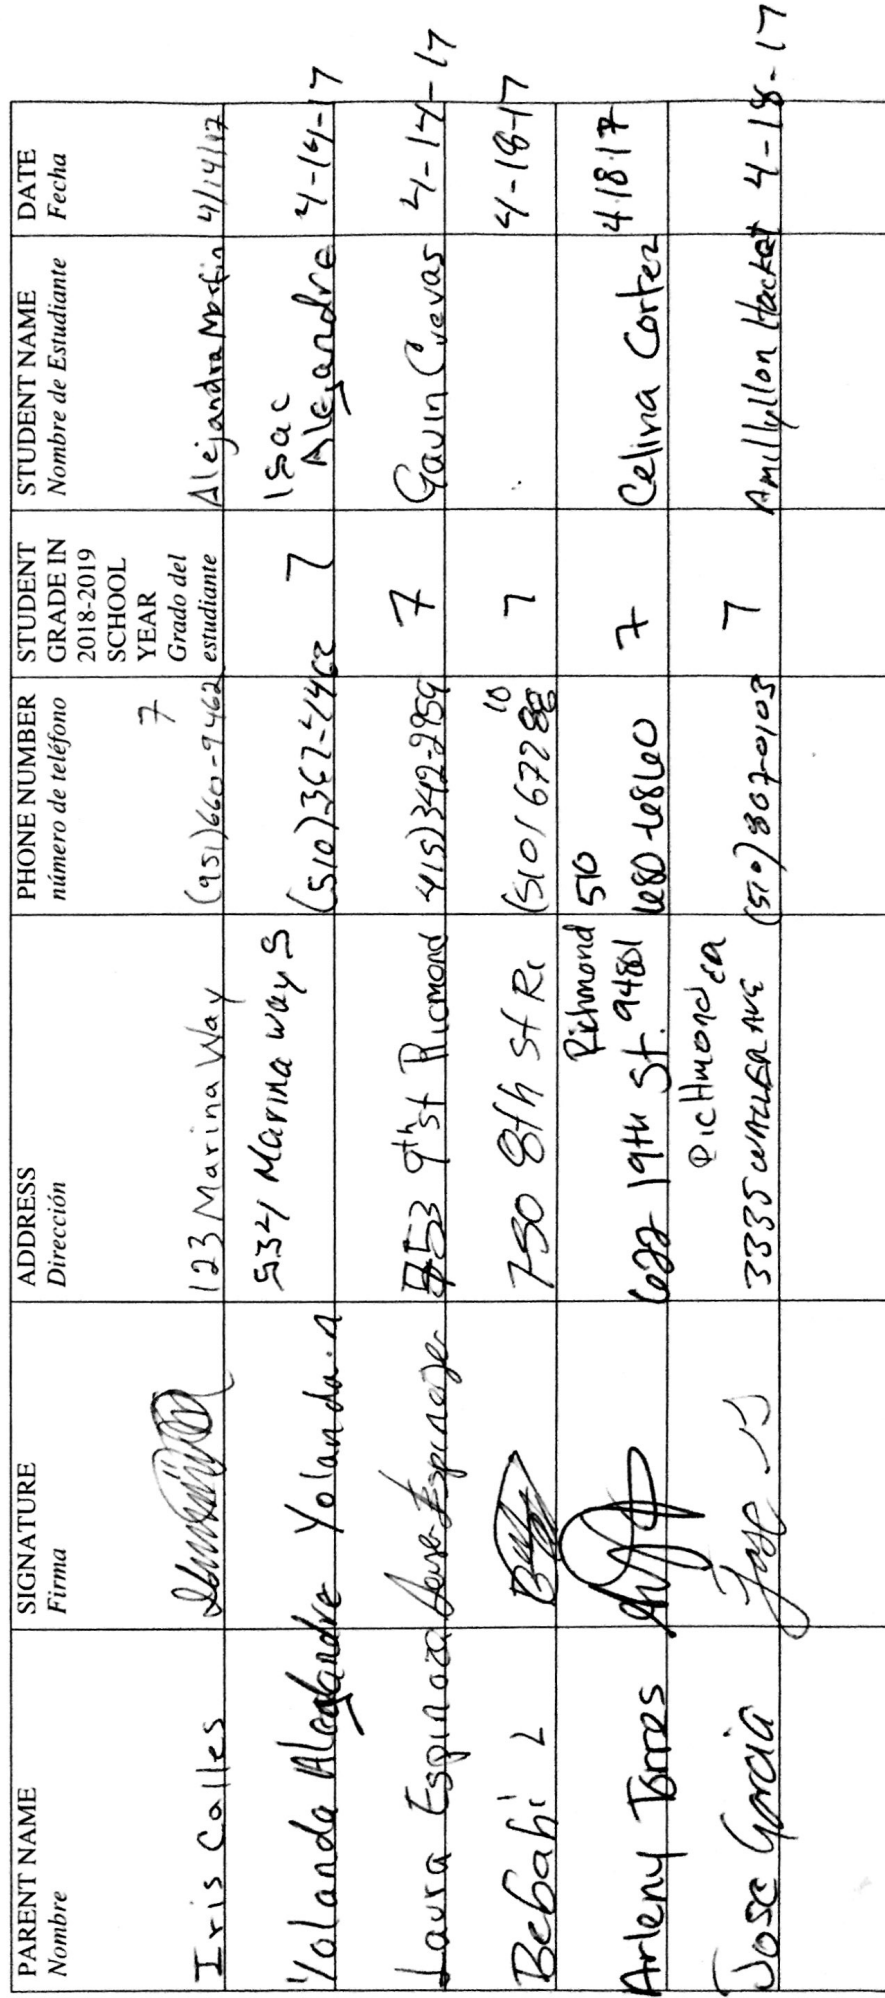 PARENT NAME
Nombre
SIGNATURE
Firma
ADDRESS
Dirección
PHONE NUMBER
número de teléfono
STUDENT
GRADE IN
2018-2019
SCHOOL
YEAR
Grado del
estudiante
STUDENT NAME
Nombre de Estudiante
DATE
Fecha
Iris Calles
123 Marina Way
7
Alejandra
4/14/17
Yolanda Alejandre
Yolanda.A
534 Marina way S
(510)367-4462
7
Isac
Alejandre
4-14-17
Laura Espinoza
Laura Espinoza
9th st Ricmond
415)342-2959
7
Gavin Cuevas
4-14-17
L
750 8th St Ri
10
(510)
7
4-18-17
Arleny Torres
Richmond
622 19th St. 94801
510
680-6860
7
Celina Cortez
4.18.17
Jose Garcia
Jose
RicHmond ca
3335 WALLER AVE
(510) 807-0103
7
Hacket
4-18-17